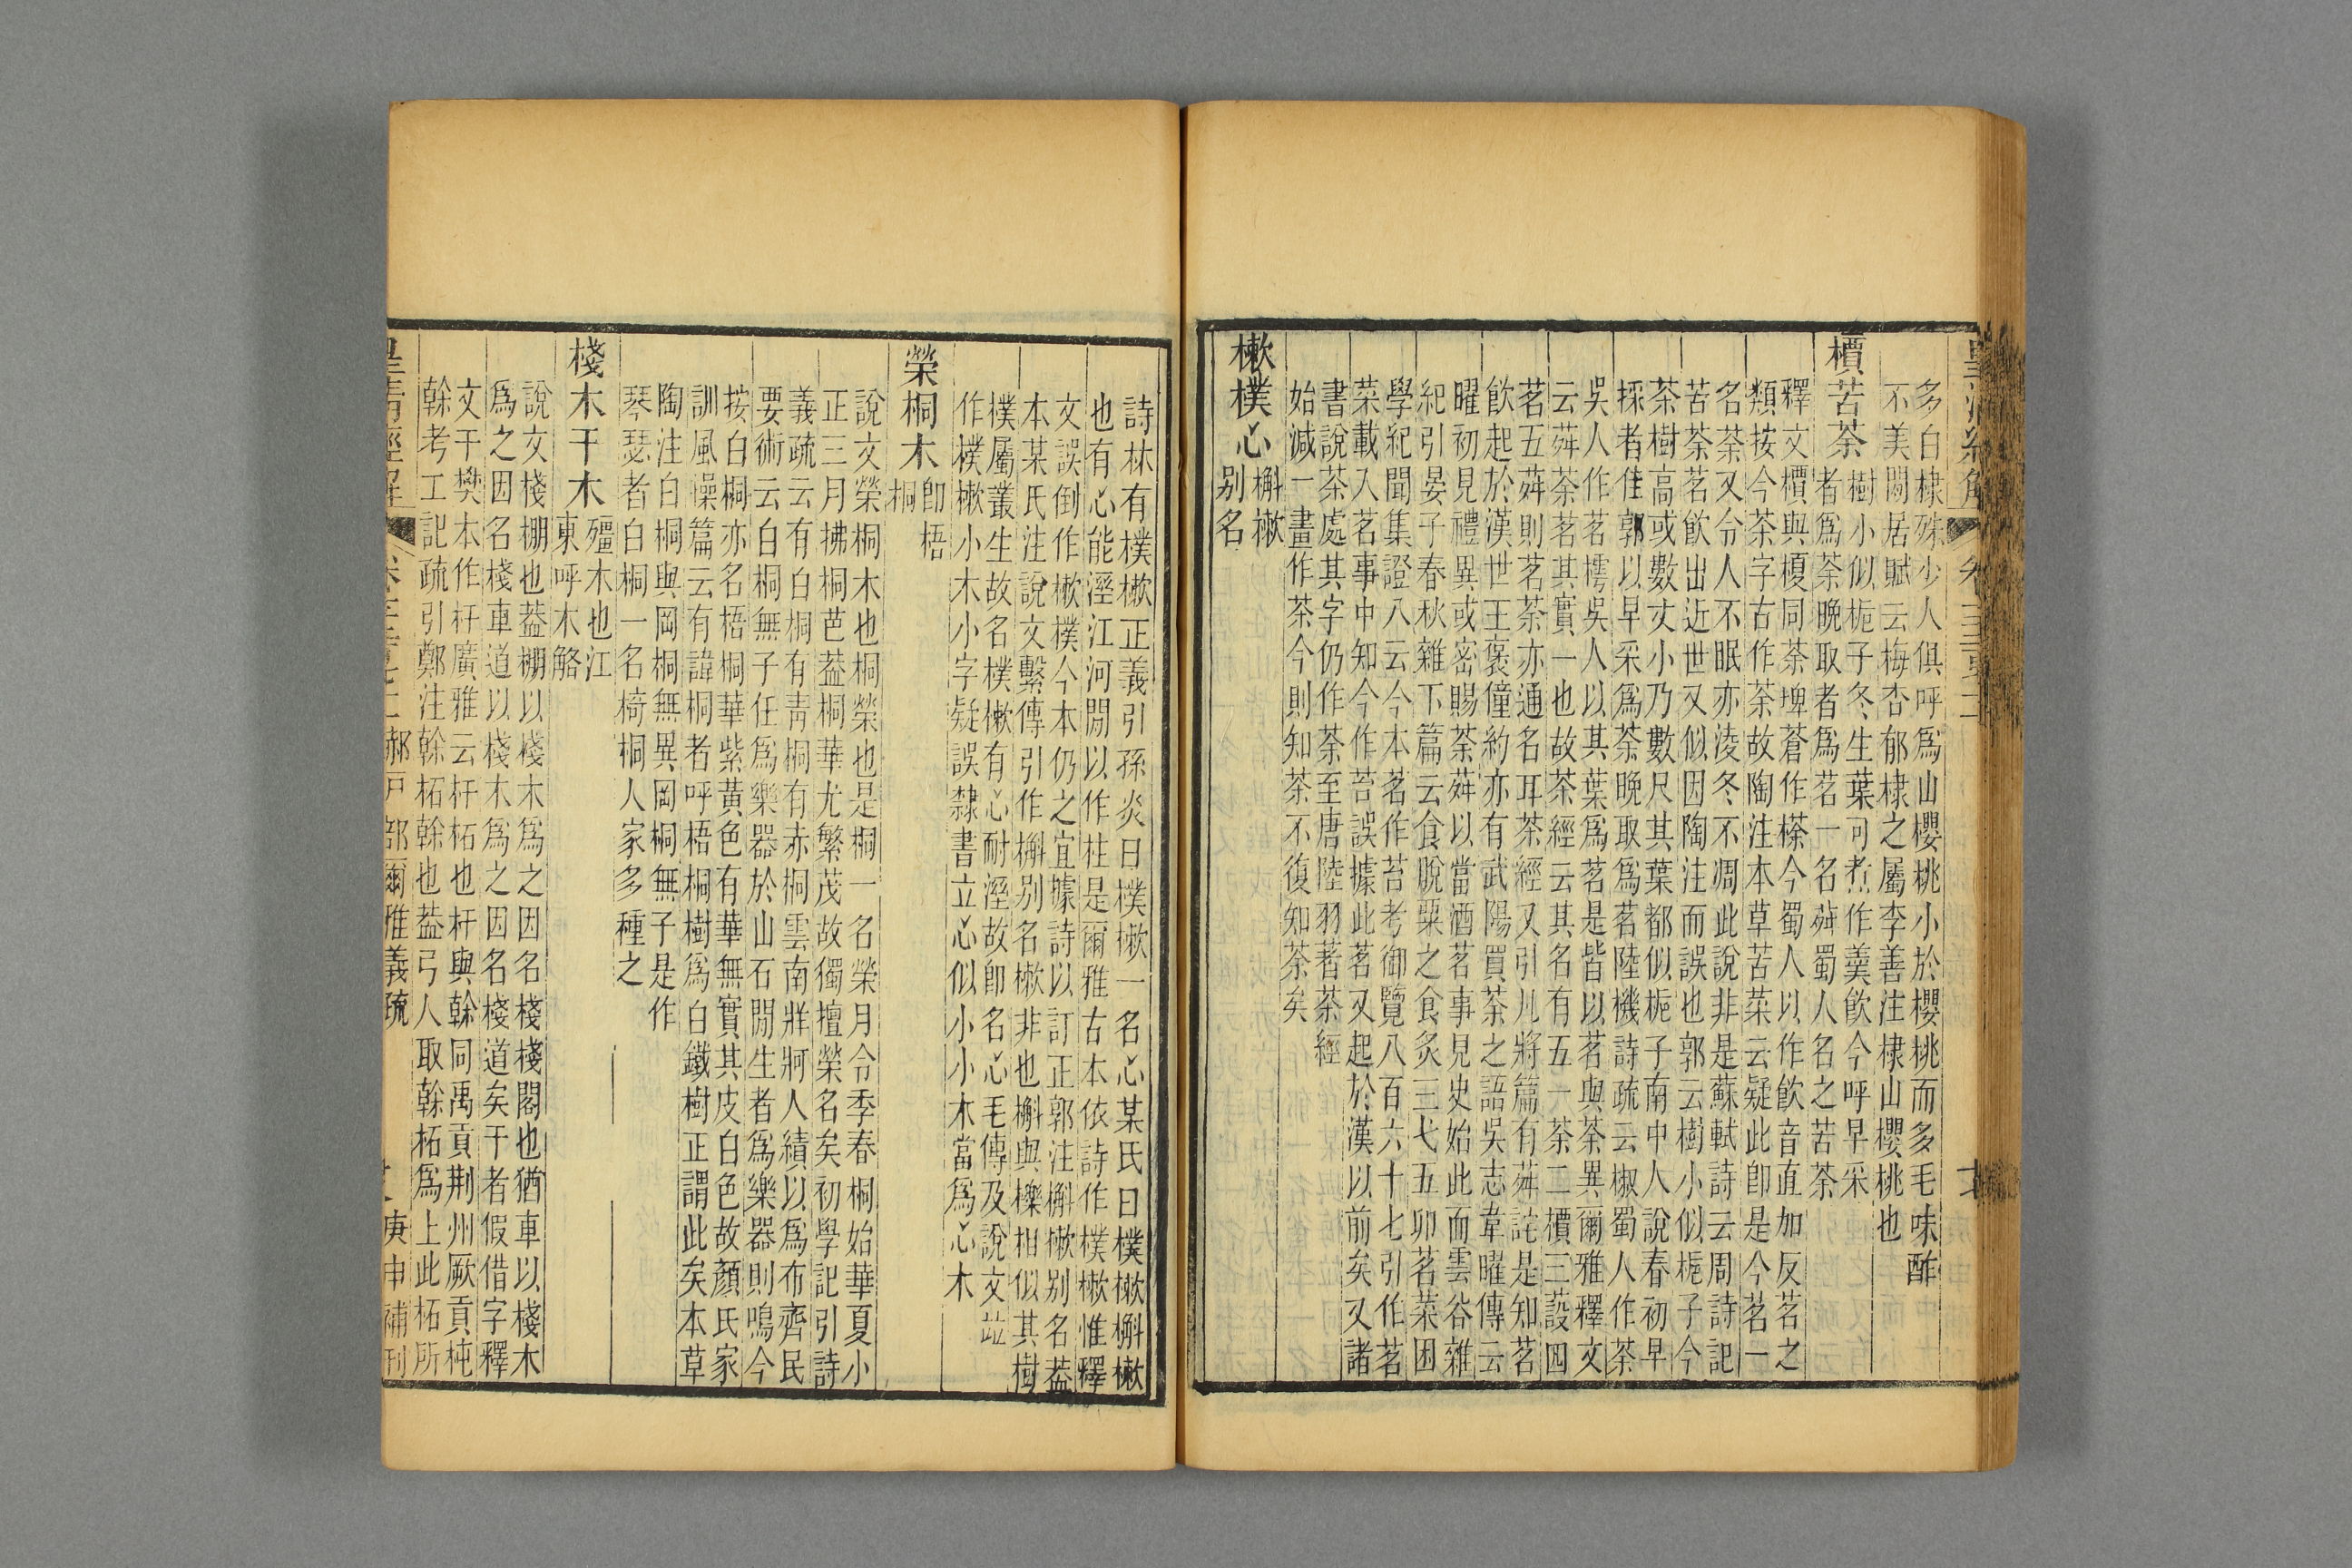 多白棣殊少人俱呼爲山櫻桃小於櫻桃而多毛味酢
不美閒居賦云梅杏郁棣之屬李善注棣山櫻桃也
檟苦荼
樹小似梔子冬生葉可煮作羹飲今呼早采
者爲荼晩取者爲茗一名荈蜀人名之苦荼
釋文檟與榎同荼埤蒼作㮆今蜀人以作飲音直加反茗之
類按今茶字古作荼故陶注本草苦菜云疑此卽是今茗一
名荼又令人不眠亦淩冬不凋此說非是蘇軾詩云周詩記
苦荼茗飲出近世又似因陶注而誤也郭云樹小似梔子今
茶樹高或數丈小乃數尺其葉都似梔子南中人說春初早
採者佳郭以早采爲荼晩取爲茗陸機詩疏云椒蜀人作茶
吳人作茗樗吳人以其葉爲茗是皆以茗與荼異爾雅釋文
云荈荼茗其實一也故茶經云其名有五一茶二檟三蔎四
茗五荈則茗荼亦通名耳茶經又引凡將篇有荈詫是知茗
飲起於漢世王褒僮約亦有武陽買茶之語吳志韋曜傳云
曜初見禮異或密賜荼荈以當酒茗事見史始此而雲谷雜
紀引晏子春秋雜下篇云食脫粟之食炙三弋五卯茗菜困
學紀聞集證八云今本茗作苔考御覽八百六十七引作茗
菜載入茗事中知今作苔誤據此茗又起於漢以前矣又諸
書說茶處其字仍作荼至唐陸羽著茶經
始減一畫作茶今則知茶不復知荼矣
樕樸心
槲樕
别名
詩林有樸樕正義引孫炎曰樸樕一名心某氏曰樸樕槲樕
也有心能溼江河閒以作柱是爾雅古本依詩作樸樕惟釋
文誤倒作樕樸今本仍之宜據詩以訂正郭注槲樕别名葢
本某氏注說文繫傳引作槲别名樕非也槲與櫟相似其樹
樸屬叢生故名樸樕有心耐溼故卽名心毛傳及說文竝
作樸樕小木小字疑誤隸書立心似小小木當爲心木
榮桐木
卽梧
桐
說文榮桐木也桐榮也是桐一名榮月令季春桐始華夏小
正三月拂桐芭葢桐華尤繁茂故獨擅榮名矣初學記引詩
義疏云有白桐有靑桐有赤桐雲南牂牁人績以爲布齊民
要術云白桐無子任爲樂器於山石閒生者爲樂器則鳴今
按白桐亦名梧桐華紫黃色有華無實其皮白色故顏氏家
訓風操篇云有諱桐者呼梧桐樹爲白鐵樹正謂此矣本草
陶注白桐與岡桐無異岡桐無子是作
琴瑟者白桐一名椅桐人家多種之
棧木干木
殭木也江
東呼木觡
說文棧棚也葢棚以棧木爲之因名棧棧閣也猶車以棧木
爲之因名棧車道以棧木爲之因名棧道矣干者假借字釋
文干樊本作杆廣雅云杆柘也杆與榦同禹貢荆州厥貢杶
榦考工記疏引鄭注榦柘榦也葢弓人取榦柘爲上此柘所
皇清經解
郝戸部爾雅義疏
庚申補刊